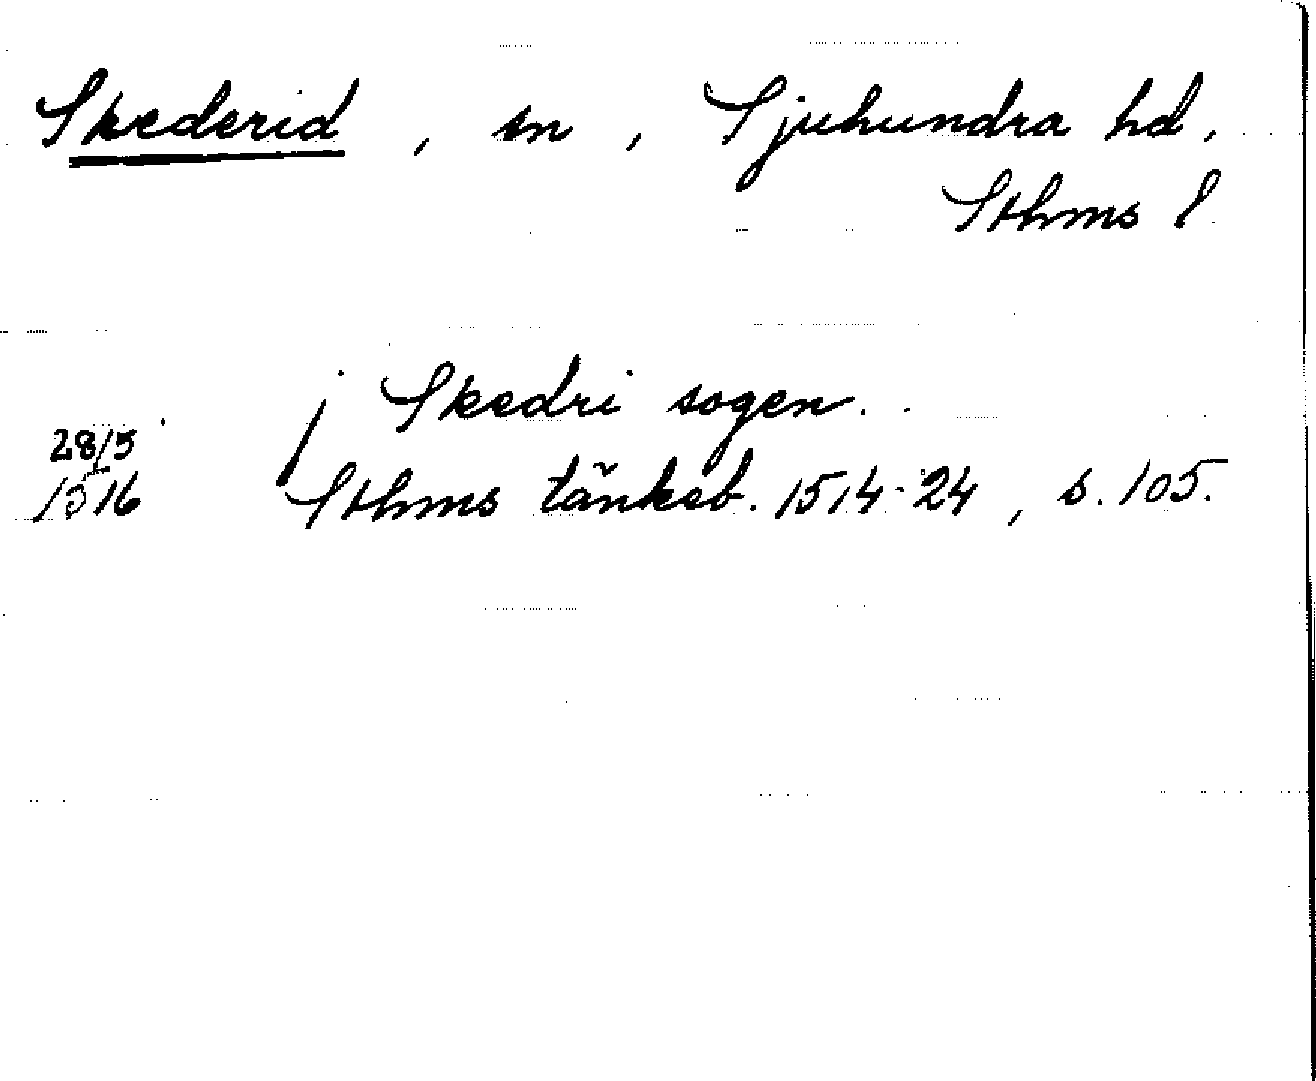 Skederid, sn, Sjuhundra hd,
Sthms l
j Skedri sogen.
28/5
1516 Sthms tänkeb. 1514-24, s. 105.